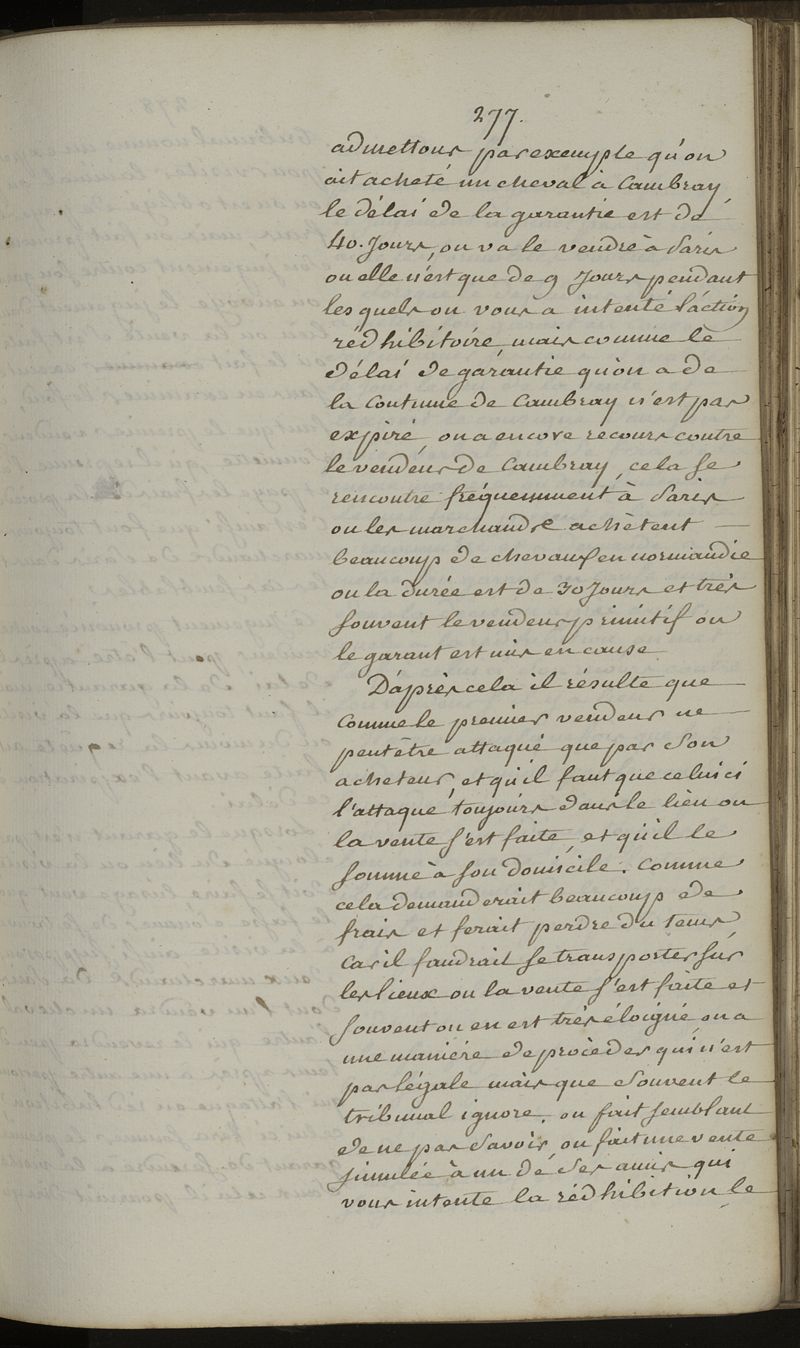 277.
admettons par exemple qu'on
ait acheté un cheval à Cambray,
le délai de la garantie est de
40. Jours, on va le vendre à Paris
ou elle n'est que de 9 Jours pendant
les quels on vous a intenté l'action
rédhibitoire, mais comme le
délai de garantie qu'on a de
la Coutume de Cambray n'est pas
expiré, on a encore recours contre
le vendeur de Cambray, cela se
rencontre fréquemment à Paris
ou les marchands achètent
beaucoup de chevaux en normandie
ou la durée est de 30 Jours et très
souvent le vendeur primitif ou
le garant est mis en cause
D'après cela il résulte que
comme le premier vendeur ne
peut être attaqué que par son
acheteur, et qu'il faut que celui ci
l'attaque toujours dans le lieu ou
la vente s'est faite, et qu'il le
somme à son domicile. Comme
cela demanderait beaucoup de
frais et ferait perdre du tems
Car il faudrait se transporter sur
les lieux ou la vente s'est faite et
souvent on en est très éloigné, on a
une manière de procèder qui n'est
pas légale mais que souvent le
tribunal ignore, ou fait semblant
de ne pas savoir, on fait une vente
simulée à un de ses amis qui
vous intente la rédhibition le